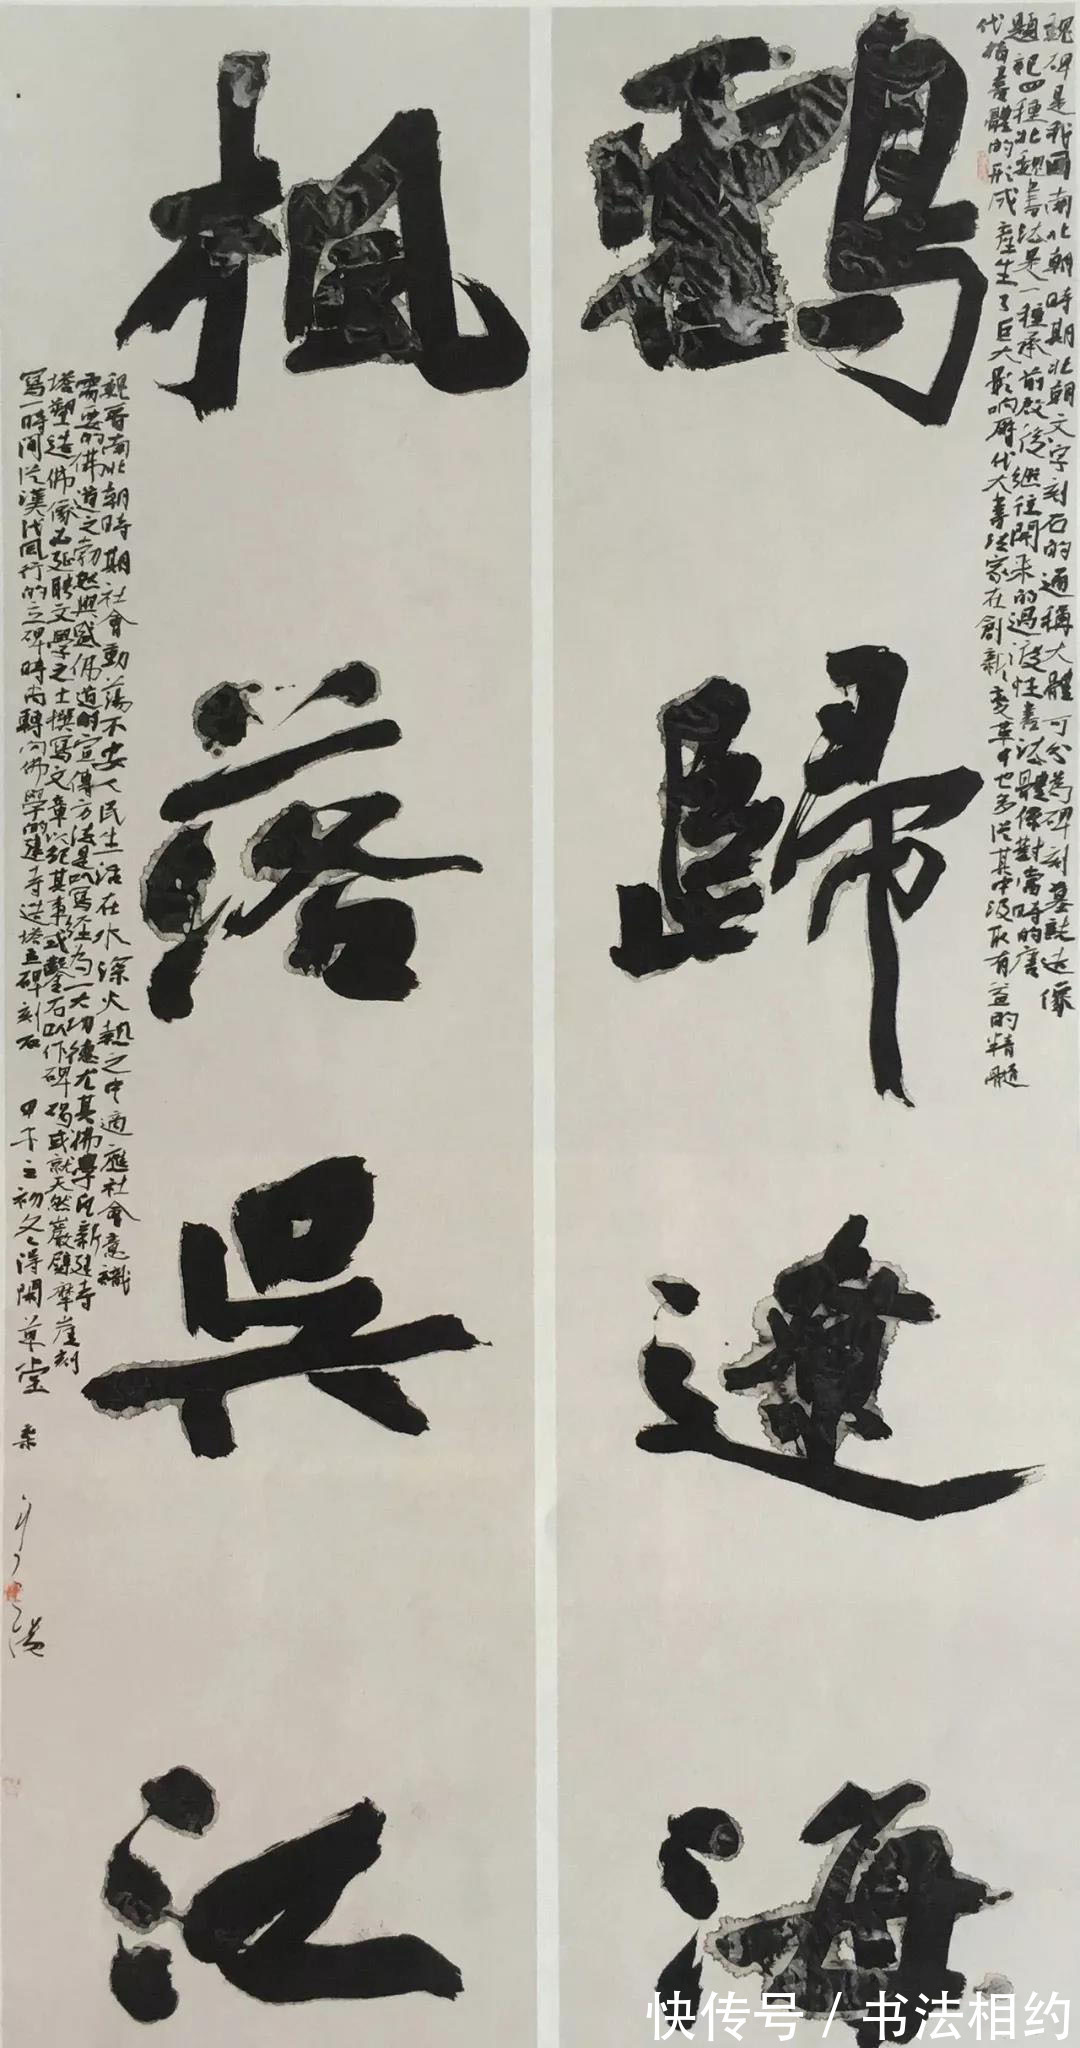 鶴歸遼海
魏碑是我國南北朝時期北朝文字刻石的通稱大體可分為碑刻墓誌造像
題記四種北魏書法是一種承前啟後繼往開来的過渡性書法體係對當時的唐
代楷書體的形成產生了巨大影响歷代大書法家在創新变革中也多從其中汲取有益的精髓
楓落吳江
魏晋南北朝時期社會動蕩不安人民生活在水深火熱之中適應社會意識
需要的佛道之勃然興盛佛道的宣傳方法是以寫经為一大功德尤其佛學氏新建寺
塔塑造佛像必延聘文學之士撰寫文章以記其事或鑿石以作碑碣或就天然巖壁摩崖刻
寫一時間從漢代風行的立碑時尚轉向佛學的建寺造塔立碑刻石 甲午之初冬得閑草堂
快传号 / 书法相约